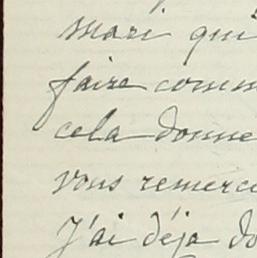 mari qui
faire comm
cela donne
vous remerci
J'ai déja do